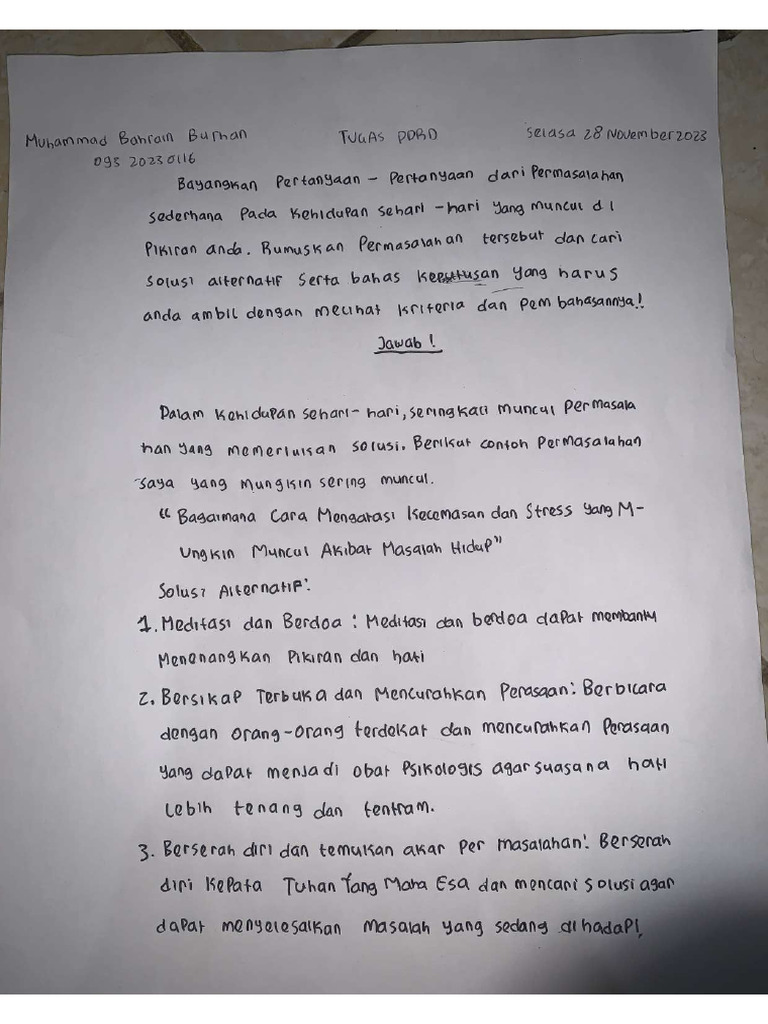 Muhammad Bahrain Burhan TUGAS PDBD Selasa 28 November 2023
093 2023 0116
Bayangkan Pertanyaan - Pertanyaan dari Permasalahan
sederhana Pada Kehidupan sehari - hari yang muncul di
Pikiran anda. Rumuskan Permasalahan tersebut dan cari
solusi alternatif serta bahas keputusan yang harus
anda ambil dengan melihat kriteria dan pembahasannya!
Jawab!
Dalam kehidupan sehari-hari, seringkali muncul permasala
han yang memerlukan solusi. Berikut contoh Permasalahan
saya yang mungkin sering muncul.
"Bagaimana Cara Mengatasi Kecemasan dan Stress yang M-
ungkin Muncul Akibat Masalah Hidup"
Solusi Alternatif:
1. Meditasi dan Berdoa : Meditasi dan berdoa dapat membantu
Menenangkan Pikiran dan hati
2. Bersikap Terbuka dan Mencurahkan Perasaan: Berbicara
dengan orang-orang terdekat dan mencurahkan Perasaan
yang dapat menjadi obat Psikologis agar suasana hati
Lebih tenang dan tentram.
3. Berserah diri dan temukan akar Per masalahan: Berserah
diri kepata Tuhan Yang Maha Esa dan mencari solusi agar
dapat menyelesaikan masalah yang sedang di hadapi.